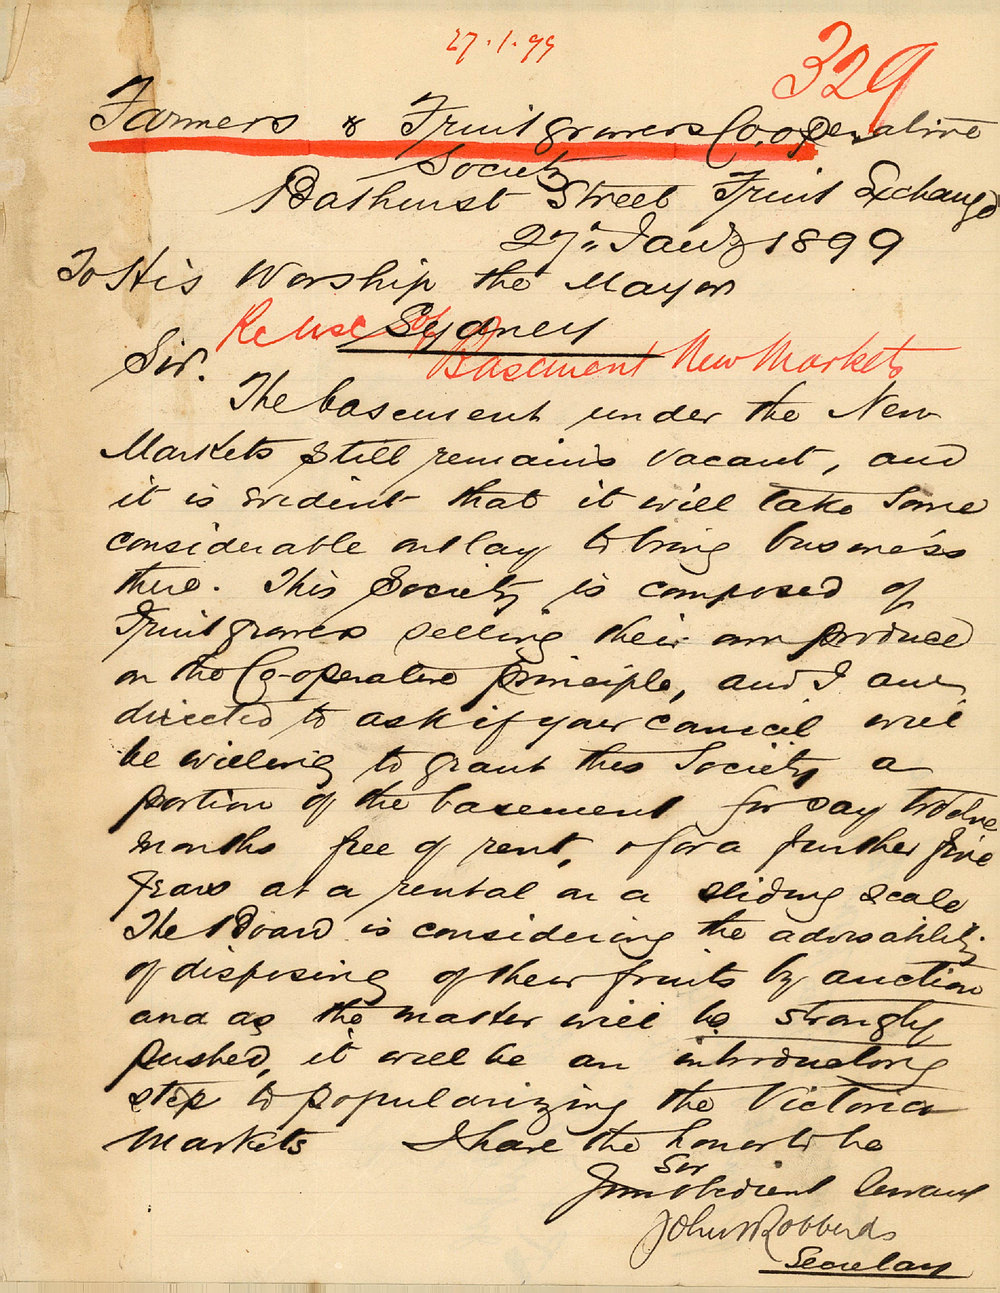 27.1.99
329
Farmers & Fruitgrowers Co.operative
Society
Bathurst Street Fruit Exchange
27th Jany 1899
To His Worship the Mayor
Sydney
Re use of
Basement New Markets
Sir.
The basement under the New
Markets still remains vacant, and
it is evident that it will take some
considerable outlay to bring business
there. This Society is composed of
Fruitgrowers selling their own produce
on the Co-operative principle, and I am
directed to ask if your council will
be willing to grant this Society a
portion of the basement for say twelve
months free of rent, & for a further five
years at a rental on a sliding scale
The Board is considering the advisability
of disposing of their fruits by auction
and as the matter will be strongly
pushed, it will be an introductory
step to popularizing the Victoria
Markets I have the honor to be
Sir
Your obedient Servant
John Robberds
Secretary